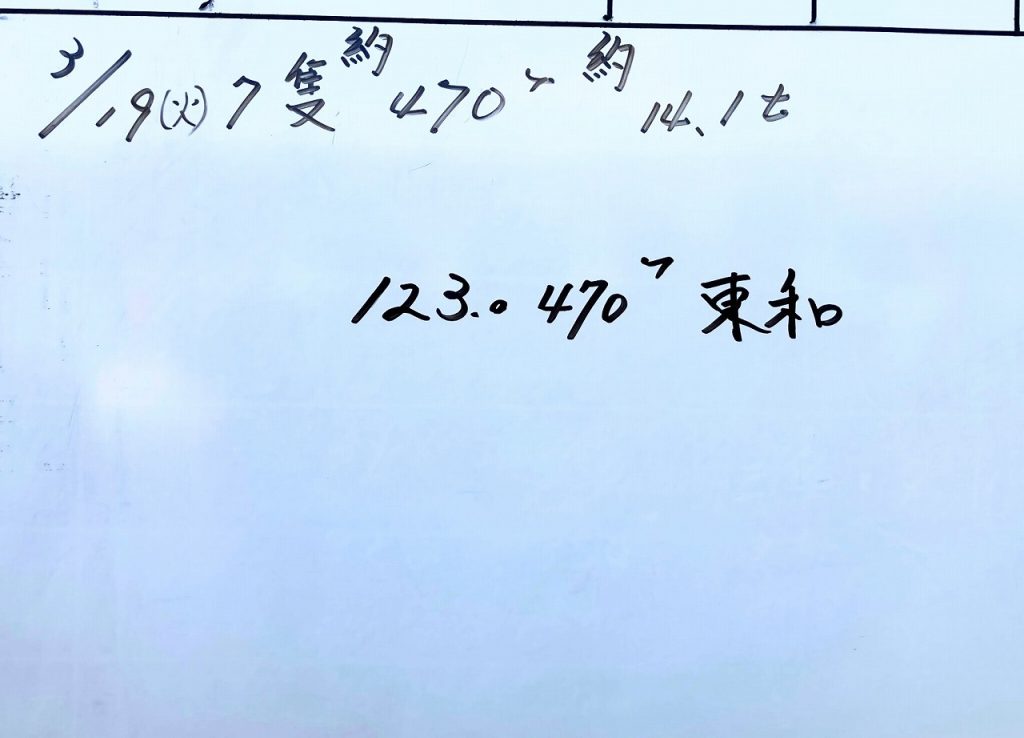 3/19(火) 7隻 約470ケ 約14.1t
123.0 470ケ 東和